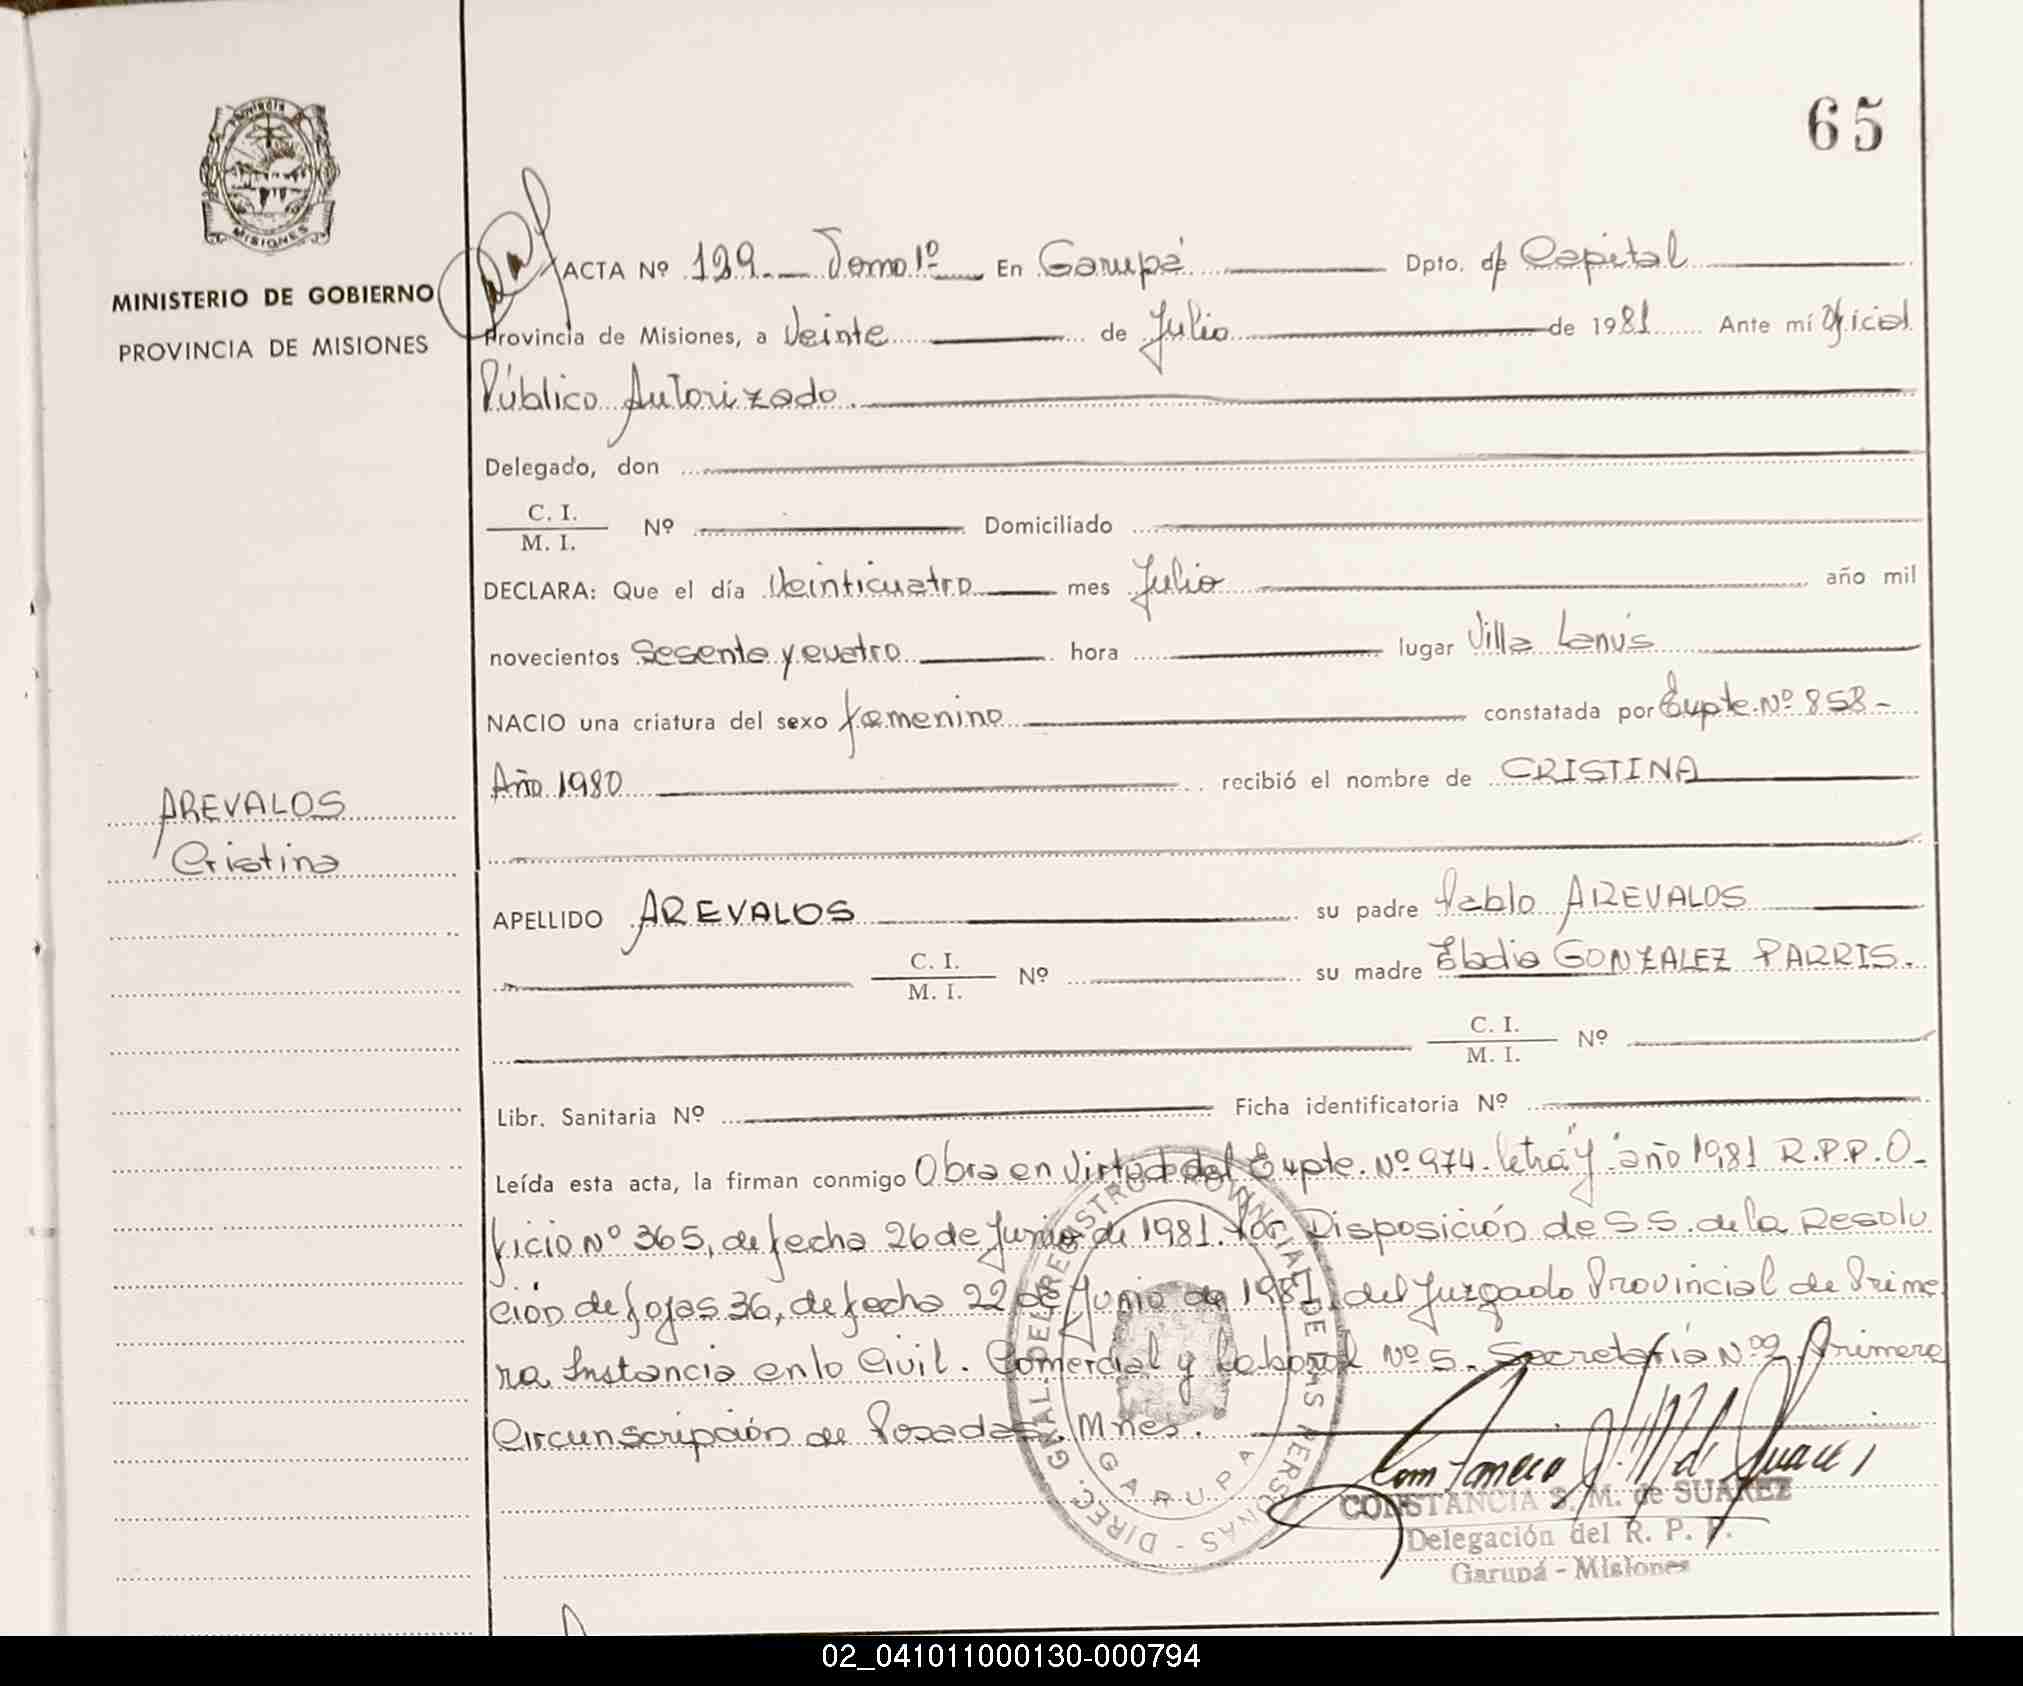 65
Provincia
MISIONES
MINISTERIO DE GOBIERNO
PROVINCIA DE MISIONES
ACTA Nº 129 Tomo 1º En Garupá Dpto. de Capital
Provincia de Misiones, a Veinte de Julio de 1981 Ante mí Oficial
Público Autorizado.
Delegado, don
C. I.
M. I. Nº Domiciliado
DECLARA: Que el día Veinticuatro mes Julio año mil
novecientos Sesenta y cuatro hora lugar Villa Lanús
NACIO una criatura del sexo femenino constatada por Expte. Nº 858-
Año 1980 recibió el nombre de CRISTINA
AREVALOS
Cristina
APELLIDO AREVALOS su padre Pablo AREVALOS
C. I.
M. I. Nº su madre Eladia GONZALEZ PARRIS.
C. I.
M. I. Nº
Libr. Sanitaria Nº Ficha identificatoria Nº
Leída esta acta, la firman conmigo Obra en Virtud del Expte. Nº 974. letra "Y" año 1981 R.P.P. O-
ficio Nº 365, de fecha 26 de Junio de 1981. Por Disposición de S.S. de la Resolu
ción de fojas 36, de fecha 22 de Junio de 1981, del Juzgado Provincial de Prime
ra Instancia en lo Civil. Comercial y Laboral Nº 5. Secretaría Nº 9 Primera
Circunscripción de Posadas. Mnes.
DIREC. GRAL. DEL REGISTRO PROVINCIAL DE LAS PERSONAS -
GARUPA
CONSTANCIA S. M. de SUAREZ
Delegación del R. P. P.
Garupá - Misiones
02_041011000130-000794